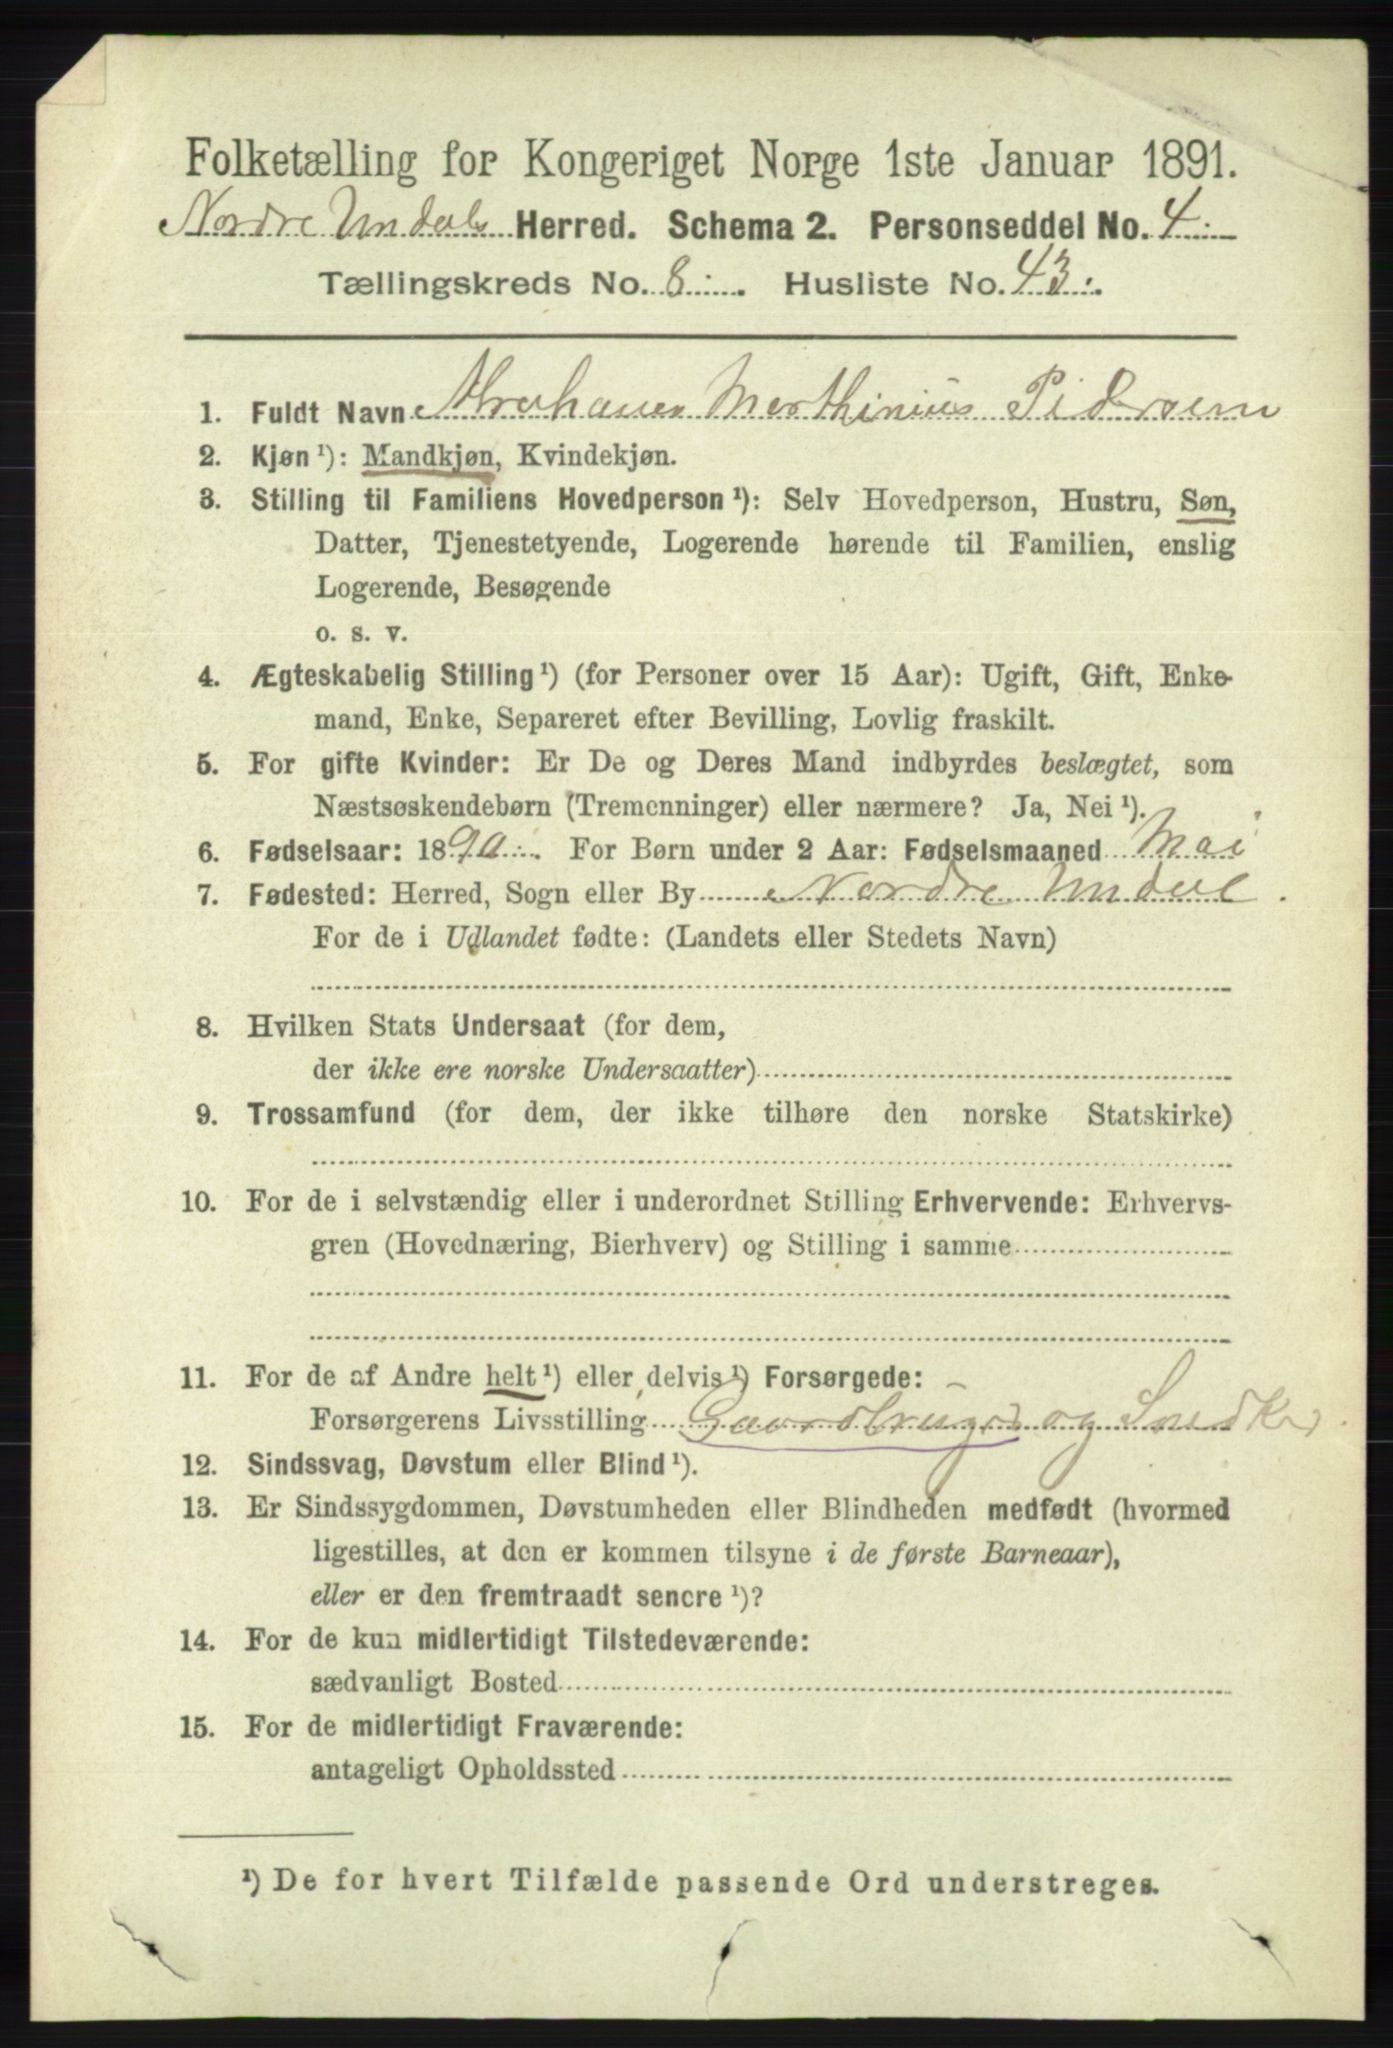 Folketælling for Kongeriget Norge 1ste Januar 1891.
Nordre Undals Herred. Schema 2. Personseddel No. 4.
Tællingskreds No. 8. Husliste No. 43.
1. Fuldt Navn Abraham Marthinius Pedersen
2. Kjøn ¹): Mandkjøn, Kvindekjøn.
3. Stilling til Familiens Hovedperson ¹): Selv Hovedperson, Hustru, Søn,
Datter, Tjenestetyende, Logerende hørende til Familien, enslig
Logerende, Besøgende
o. s. v.
4. Ægteskabelig Stilling ¹) (for Personer over 15 Aar): Ugift, Gift, Enke-
mand, Enke, Separeret efter Bevilling, Lovlig fraskilt.
5. For gifte Kvinder: Er De og Deres Mand indbyrdes beslægtet, som
Næstsøskendebørn (Tremenninger) eller nærmere? Ja, Nei ¹).
6. Fødselsaar: 1890. For Børn under 2 Aar: Fødselsmaaned Mai
7. Fødested: Herred, Sogn eller By Nordre Undal.
For de i Udlandet fødte: (Landets eller Stedets Navn)
8. Hvilken Stats Undersaat (for dem,
der ikke ere norske Undersaatter)
9. Trossamfund (for dem, der ikke tilhøre den norske Statskirke)
10. For de i selvstændig eller i underordnet Stilling Erhvervende: Erhvervs-
gren (Hovednæring, Bierhverv) og Stilling i samme
11. For de af Andre helt ¹) eller delvis ¹) Forsørgede: -
Forsørgerens Livsstilling Gaardbruger og Snedker
12. Sindssvag, Døvstum eller Blind ¹).
13. Er Sindssygdommen, Døvstumheden eller Blindheden medfødt (hvormed
ligestilles, at den er kommen tilsyne i de første Barneaar),
eller er den fremtraadt senere ¹)?
14. For de kun midlertidigt Tilstedeværende:
sædvanligt Bosted
15. For de midlertidigt Fraværende:
antageligt Opholdssted
¹) De for hvert Tilfælde passende Ord understreges.